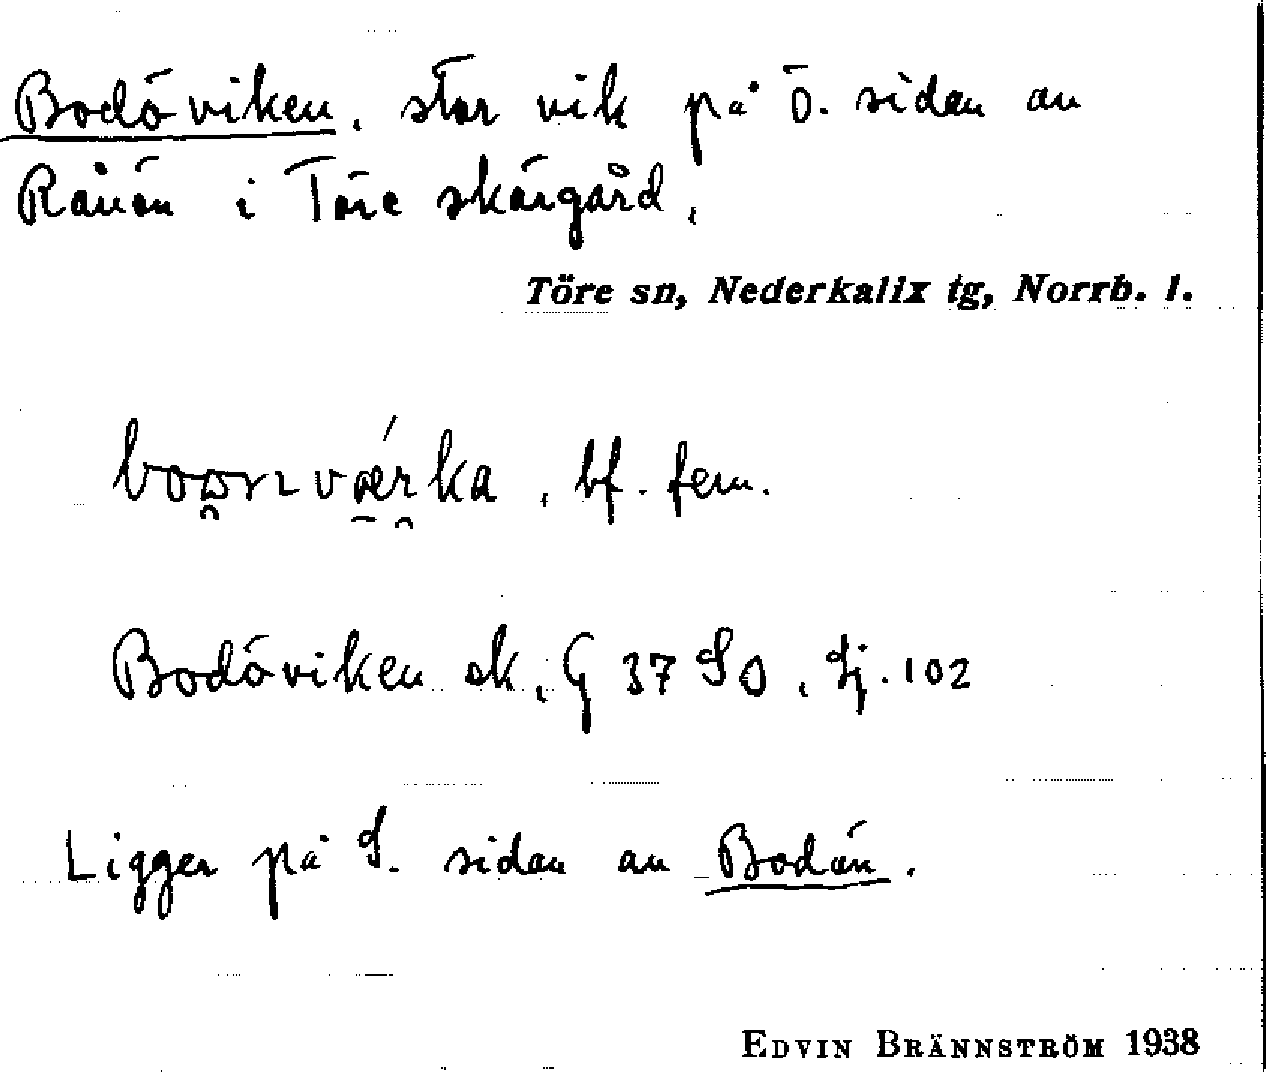 Bodöviken, stor vik på Ö. sidan av
Rånön i Töre skärgård,
Töre sn, Nederkalix tg, Norrb. l.
bf. fem.
Bodöviken ek, G 37 SO, Sj. 102
Ligger på S. sidan av Bodön.
EDVIN BRÄNNSTRÖM 1938